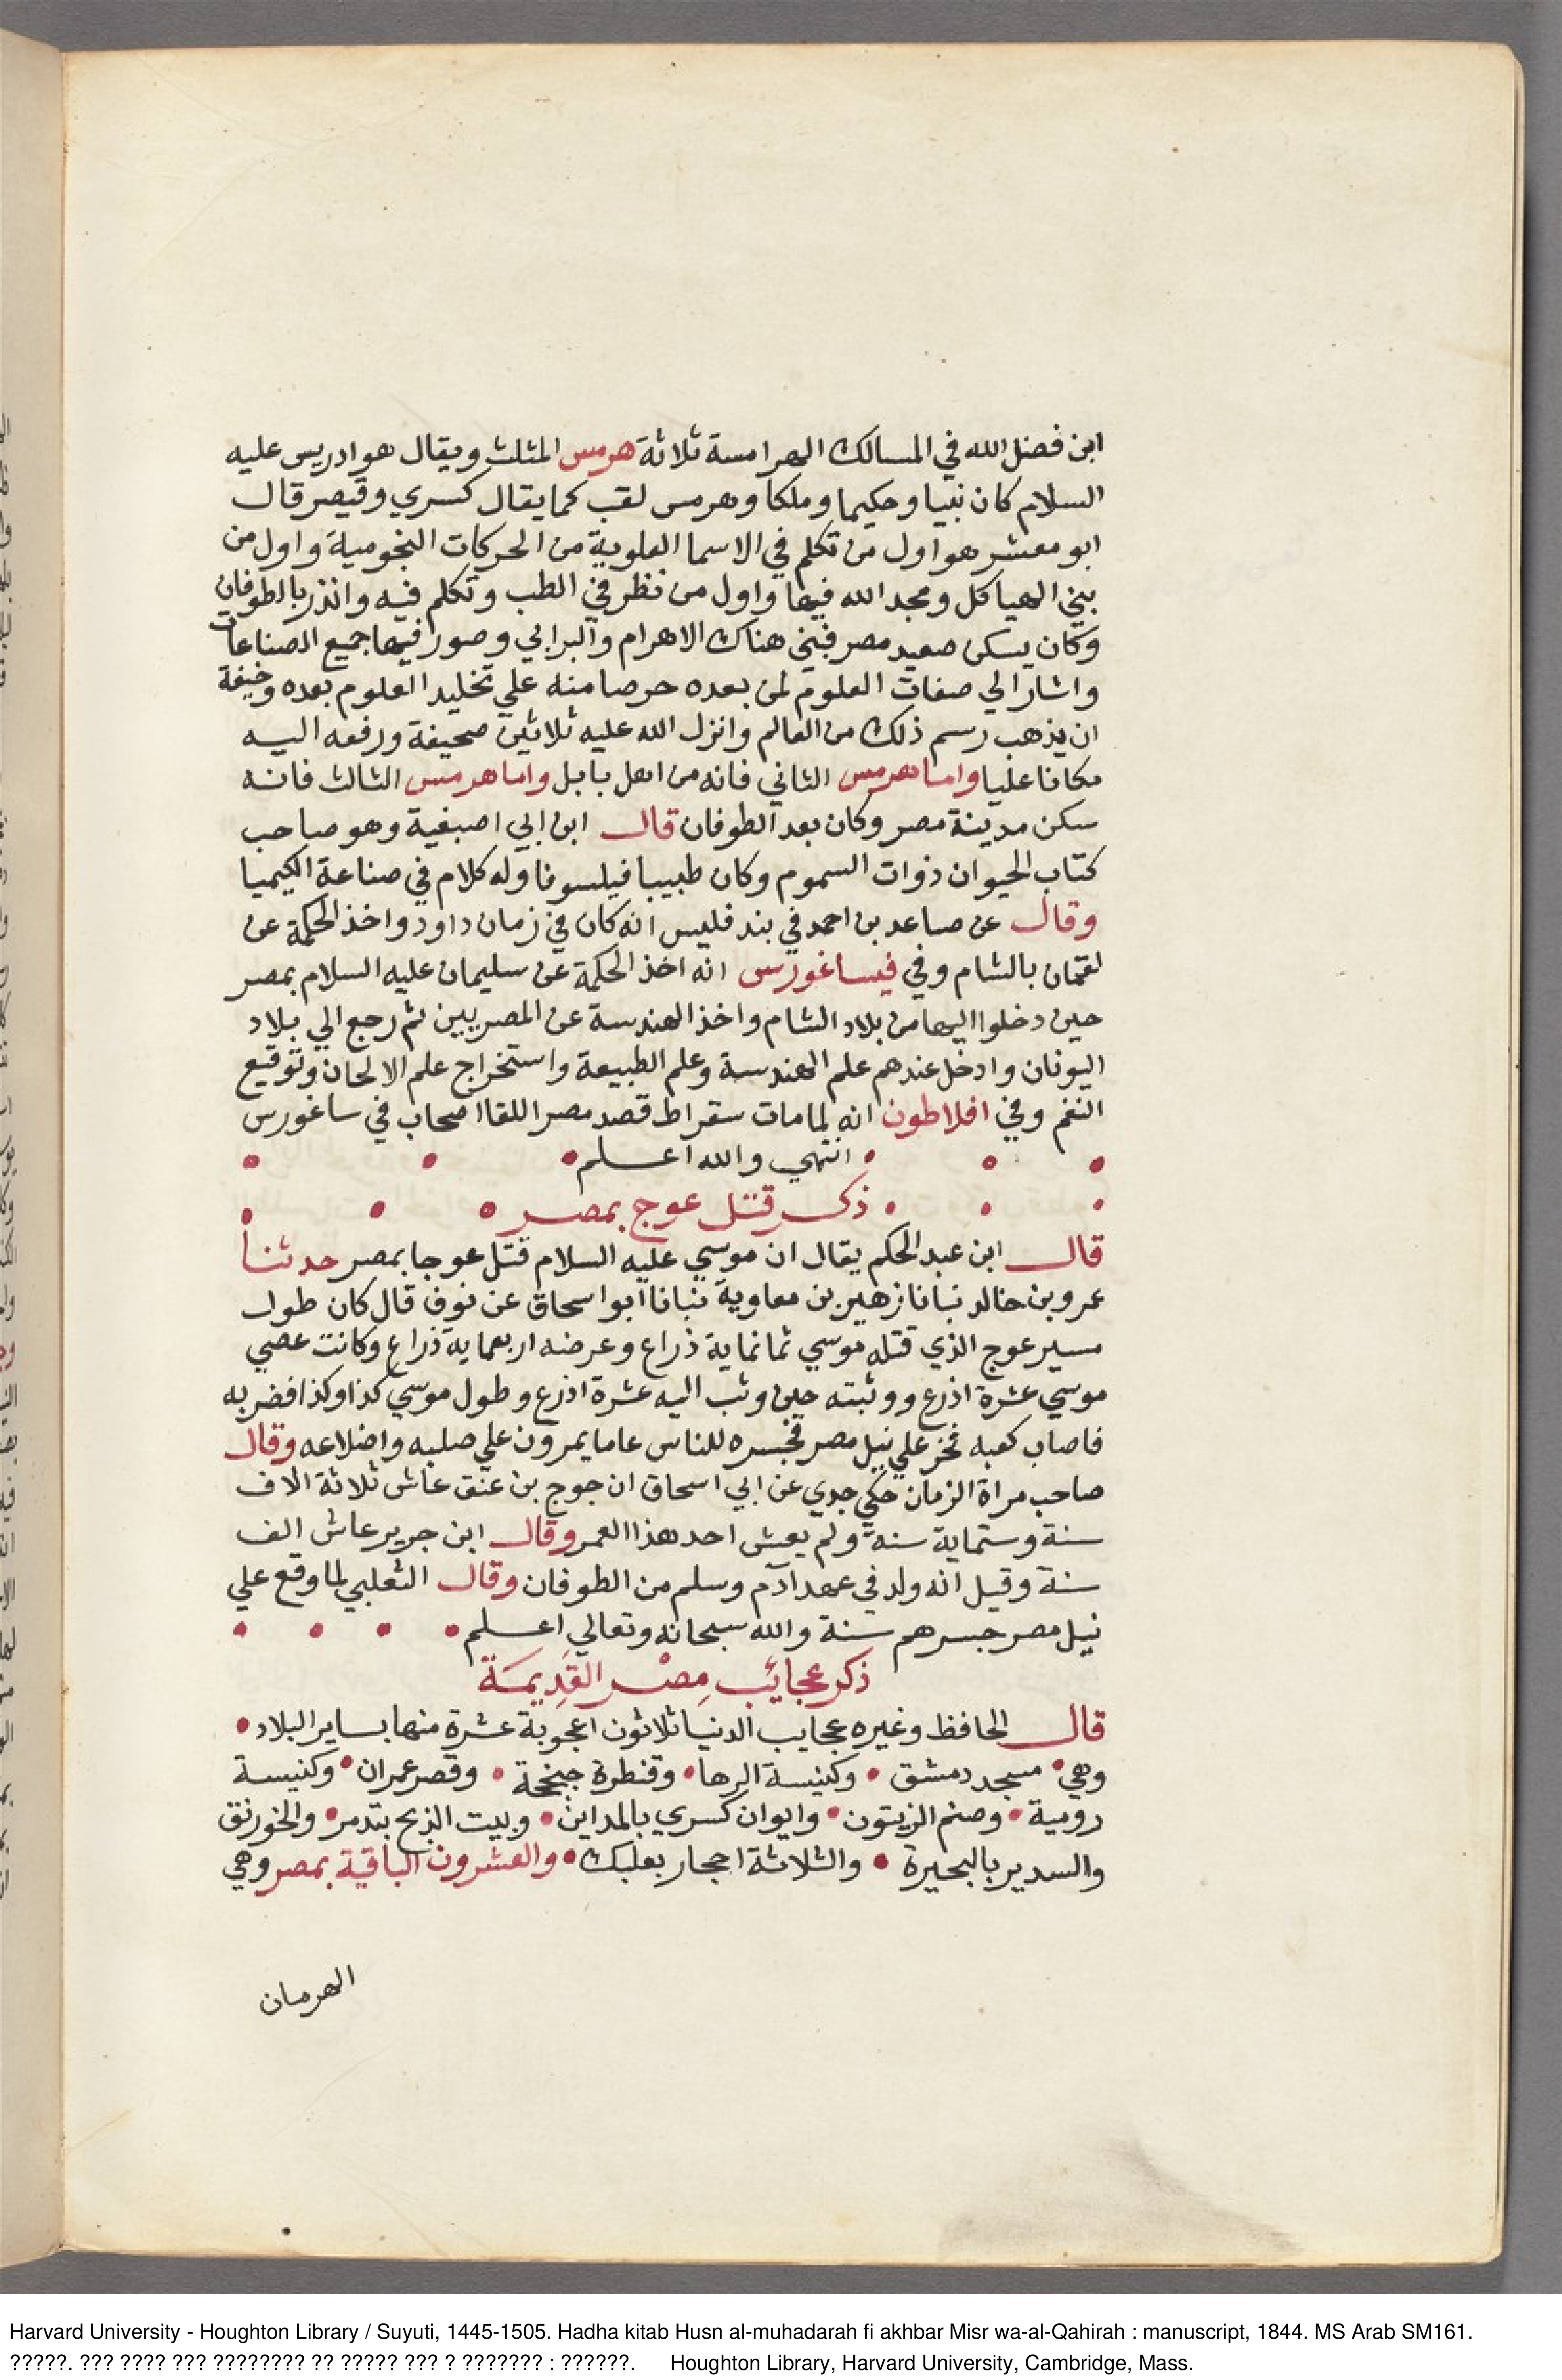 ابن فضل الله في المسالك الهرامسة ثلاثة هرمس المثلث ويقال هو ادريس عليه
السلام كان نبيا وحكيما وملكا وهرمس لقب كما يقال كسري وقيصر قال
ابو معشر هو اول من تكلم في الاسما العلوية من الحركات النجومية واول من
بني الهياكل ومجد الله فيها واول من نظر في الطب وتكلم فيه وانذر بالطوفان
وكان يسكن صعيد مصر فبني هناك الاهرام والبرابي وصور فيها جميع الصناعات
واشار الي صفات العلوم لمن بعده حرصا منه علي تخليد العلوم بعده وخيفة
ان يذهب رسم ذلك من العالم وانزل الله عليه ثلاثين صحيفة ورفعه اليه
مكانا عليا واما هرمس الثاني فانه من اهل بابل واما هرمس الثالث فانه
سكن مدينة مصر وكان بعد الطوفان قال ابن ابي اصبغية وهو صاحب
كتاب الحيوان ذوات السموم وكان طبيبا فيلسوفا وله كلام في صناعة الكيميا
وقال عن صاعد بن احمد في بند فليس انه كان في زمان داود واخذ الحكمة عن
لقمان بالشام وفي فيساغورس انه اخذ الحكمة عن سليمان عليه السلام بمصر
حين دخلوا اليها من بلاد الشام واخذ الهندسة عن المصريين ثم رجع الي بلاد
اليونان وادخل عندهم علم الهندسة وعلم الطبيعة واستخراج علم الالحان وتوقيع
النغم وفي افلاطون انه لما مات سقراط قصد مصر اللقا اصحاب في ساغورس
انتهي والله اعلم
ذكر قتل عوج بمصر
قال ابن عبد الحكم يقال ان موسي عليه السلام قتل عوجا بمصر حدثنا
عمرو بن خالد نبانا زهير بن معاوية نبانا ابو اسحاق عن نوف قال كان طول
مسير عوج الذي قتله موسي ثمانماية ذراع وعرضه اربعماية ذراع وكانت عصي
موسي عشرة اذرع ووثبته حين وثب اليه عشرة اذرع وطول موسي كذا وكذا فضربه
فاصاب كعبه فخر علي نيل مصر فجسره للناس عاما يمرون علي صلبه واضلاعه وقال
صاحب مراة الزمان حكي جدي عن ابي اسحاق ان جوج بن عنق عاش ثلاثة الاف
سنة وستماية سنة ولم يعش احد هذا العمر وقال ابن جرير عاش الف
سنة وقيل انه ولد في عهد آدم وسلم من الطوفان وقال الثعلبي لما وقع علي
نيل مصر جسرهم سنة والله سبحانه وتعالي اعلم
ذكر عجائب مصر القديمة
قال الحافظ وغيره عجايب الدنيا ثلاثون اعجوبة عشرة منها بساير البلاد
وهي مسجد دمشق وكنيسة الرها وقنطرة جنخة وقصر عمران وكنيسة
رومية وصنم الزيتون وايوان كسري بالمداين وبيت الذبح بتدمر والخورنق
والسدير بالبحيرة والثلاثة احجار بعلبك والعشرون الباقية بمصر وهي
الهرمان
Harvard University - Houghton Library / Suyuti, 1445-1505. Hadha kitab Husn al-muhadarah fi akhbar Misr wa-al-Qahirah : manuscript, 1844. MS Arab SM161.
?????. ??? ???? ??? ???????? ?? ????? ??? ? ??????? : ??????. Houghton Library, Harvard University, Cambridge, Mass.